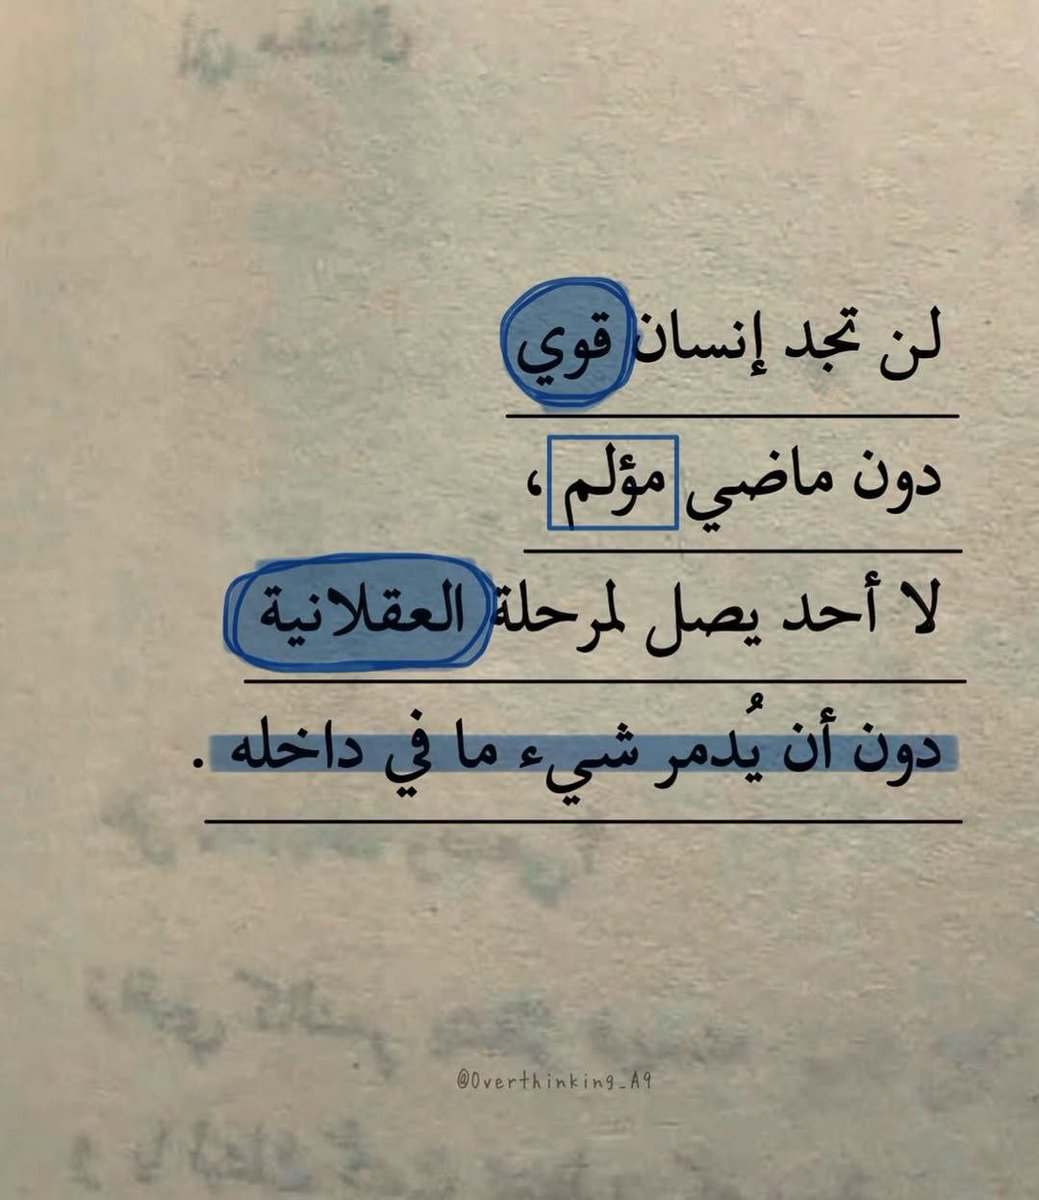 لن تجد إنسان قوي
دون ماضي مؤلم ،
لا أحد يصل لمرحلة العقلانية
دون أن يُدمر شيء ما في داخله .
@Overthinking_A9